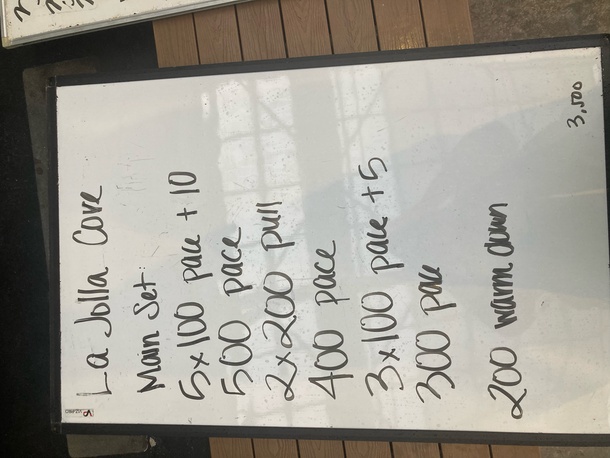 La Jolla Cove
Main Set:
5x100 pace +10
500 pace
2x200 pull
400 pace
3x100 pace +5
300 pace
200 warm down
3,500